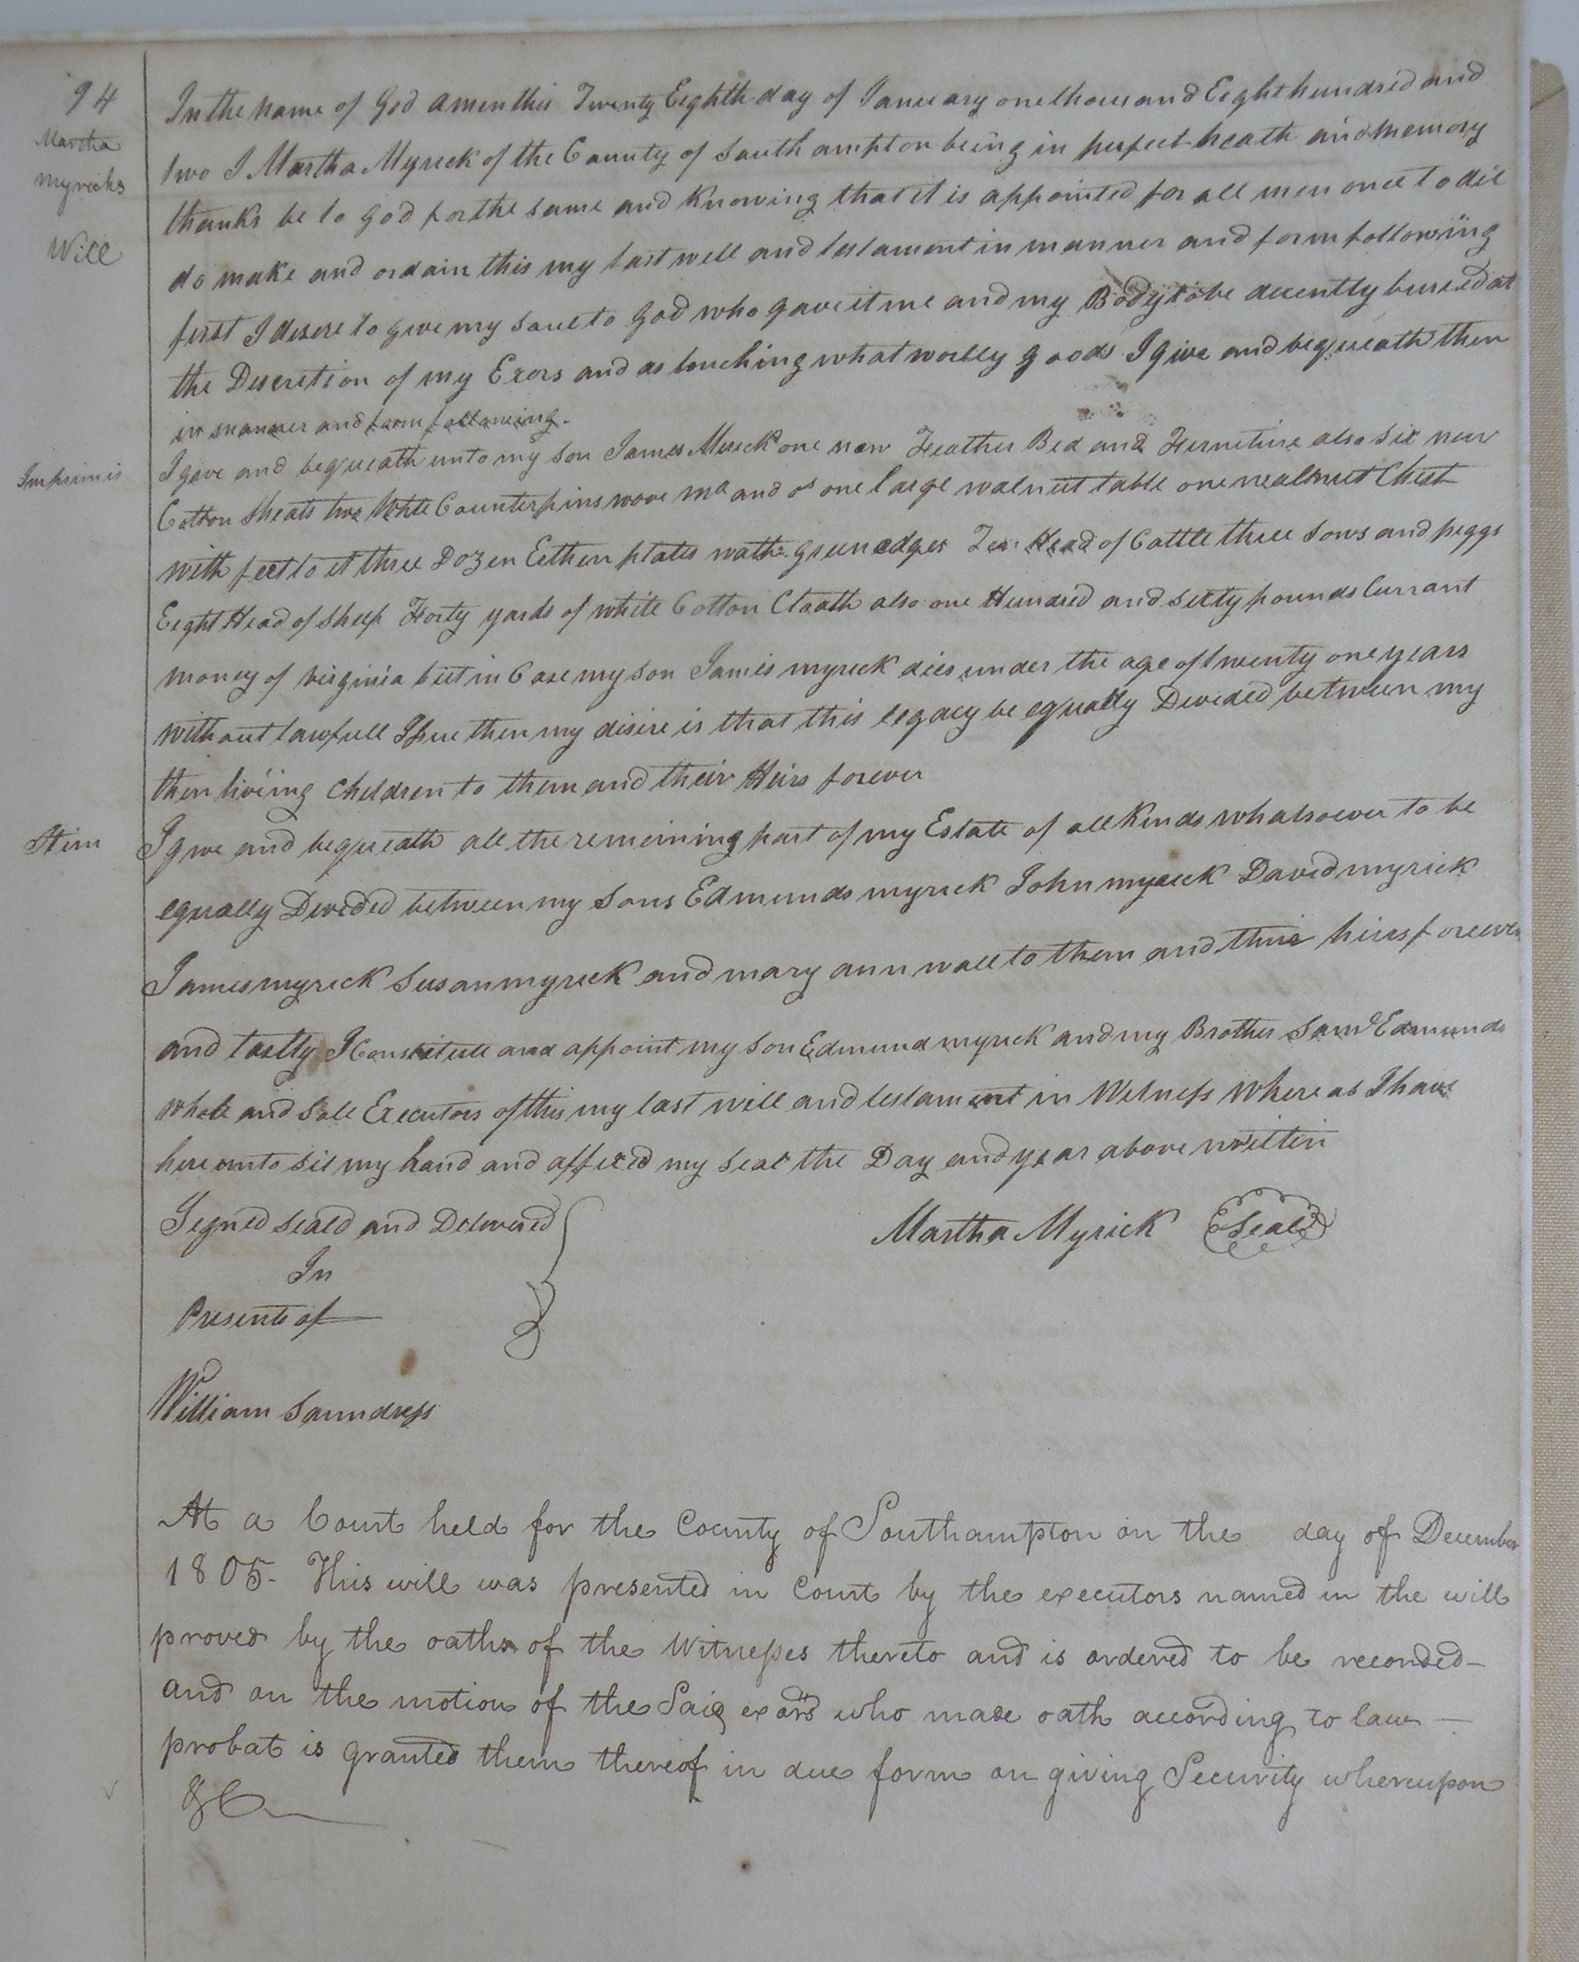 94
Martha
Myricks
Will
In the name of God amen this Twenty Eighth day of January one thousand Eight hundred and
two I Martha Myrick of the County of Southampton being in perfect heath and memory
thanks be to God for the same and knowing that it is appointed for all men once to die
do make and ordain this my last will and testament in manner and form following
first I desire to give my soul to God who gave it me and my Body to be decently buried at
the Discretion of my Exors and as touching what worlly goods I give and bequeath then
in manner and form following.
Imprimis
I gave and bequeath unto my son James Mirick one new Feather Bed and Furniture also six new
Cotton Sheats two White Counterpins wove and one large walnut table one wealnut Chest
with feet to it three Dozen Eethen plates with green edges Ten Head of Cattle three Sows and piggs
Eight Head of Sheep Forty yards of white Cotton Cloath also one Hundred and sixty pounds Currant
money of virginia but in Case my son James myrick dies under the age of twenty one years
without lawfull Issue then my disire is that this legacy be equally Devided between my
then living Children to them and their Heirs forever
Item
I give and bequeath all the remaining part of my Estate of all Kinds whatsoever to be
equally Devided between my Sons Edmunds myrick John myrick David myrick
James myrick Susan myrick and mary ann wall to them and their heirs forever
and lastly I Constitute and appoint my son Edmund myrick and my Brother Saml Edmunds
whole and Sole Executors of this my last will and testament in Witness Where as I have
here unto sit my hand and affixed my seal the Day and year above written
Signed Seald and Delivered
In
Presents of
Martha Myrick Seal
William Saundress
At a Court held for the County of Southampton on the day of December
1805. This will was presented in Court by the executors named in the will
proved by the oaths of the Witnesses thereto and is ordered to be recorded-
and on the motion of the Said exors who made oath according to law -
probat is granted them thereof in due form on giving Security whereupon
&C